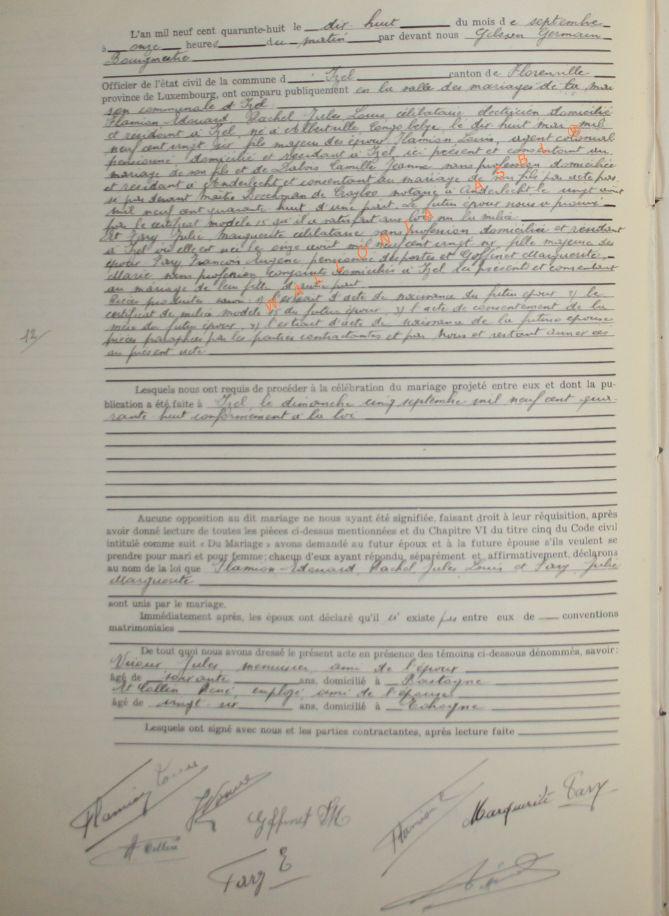 L'an mil neuf cent quarante-huit le dix huit du mois de septembre
à onze heures du matin par devant nous Gilesen Germain
Bourgmestre
Officier de l'état civil de la commune d' Izel canton de Florenville
province de Luxembourg, ont comparu publiquement en la salle des mariages de la mai
son communale d'Izel
Flamion Edouard Rachel Jules Louis célibataire domicilié
et résidant à Izel, né à Albertville Congo belge le dix huit mai mil
neuf cent vingt six fils majeur des époux Flamion Louis, agent colonial
pensionné domicilié et résidant à Izel, ici présent et consentant au
mariage de son fils et de Camille Jeanne sans profession domiciliée
et résidant à Anderlecht et consentant au mariage de son fils par acte pas
sé par devant Maître notaire à Anderlecht le vingt
mil neuf cent quarante huit d'une part. Le futur époux nous a prouvé
par le certificat modèle 15 qu'il a satisfait aux lois sur la milice
Et Fary Julie Marguerite célibataire sans profession domiciliée et résidant
à Izel où elle est née le onze août mil neuf cent vingt six, fille majeure des
époux Fary François Eugène pensionné des postes et Goffinet Marguerite
Marie sans profession conjoints domiciliés à Izel ici présent et consentant
au mariage de leur fille d'autre part
Pièces produites savoir: 1) extrait d'acte de naissance du futur époux 2) le
certificat de milice modèle 15 du futur époux, 3) l'acte de consentement de la
mère du futur époux, 4) l'extrait d'acte de naissance de la future épouse
pièces paraphées par les parties contractantes et par nous et restant annexées
au présent acte
12
WALLONIA ASBL ©
Lesquels nous ont requis de procéder à la célébration du mariage projeté entre eux et dont la pu-
blication a été faite à Izel, le dimanche cinq septembre mil neuf cent qua-
rante huit conformément à la loi
Aucune opposition au dit mariage ne nous ayant été signifiée, faisant droit à leur réquisition, après
avoir donné lecture de toutes les pièces ci-dessus mentionnées et du Chapitre VI du titre cinq du Code civil
intitulé comme suit « Du Mariage » avons demandé au futur époux et à la future épouse s'ils veulent se
prendre pour mari et pour femme; chacun d'eux ayant répondu séparément et affirmativement, déclarons
au nom de la loi que Flamion Edouard, Rachel, Jules Louis et Fary Julie
Marguerite
sont unis par le mariage.
Immédiatement après, les époux ont déclaré qu'il n' existe pas entre eux de conventions
matrimoniales
De tout quoi nous avons dressé le présent acte en présence des témoins ci-dessous dénommés, savoir:
Jules menuisier, ami de l'époux
âgé de soixante ans, domicilié à Bastogne
Et Collin René, employé ami de l'épouse
âgé de vingt six ans, domicilié à
Lesquels ont signé avec nous et les parties contractantes, après lecture faite
Flamion Louis
Goffinet M
Flamion E
Marguerite Fary
Collin
Fary E